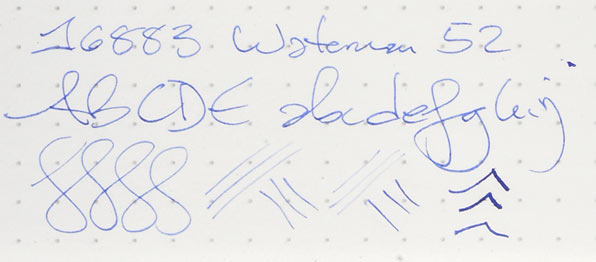 16883 Waterman 52
ABCDE abcdefghij
8888